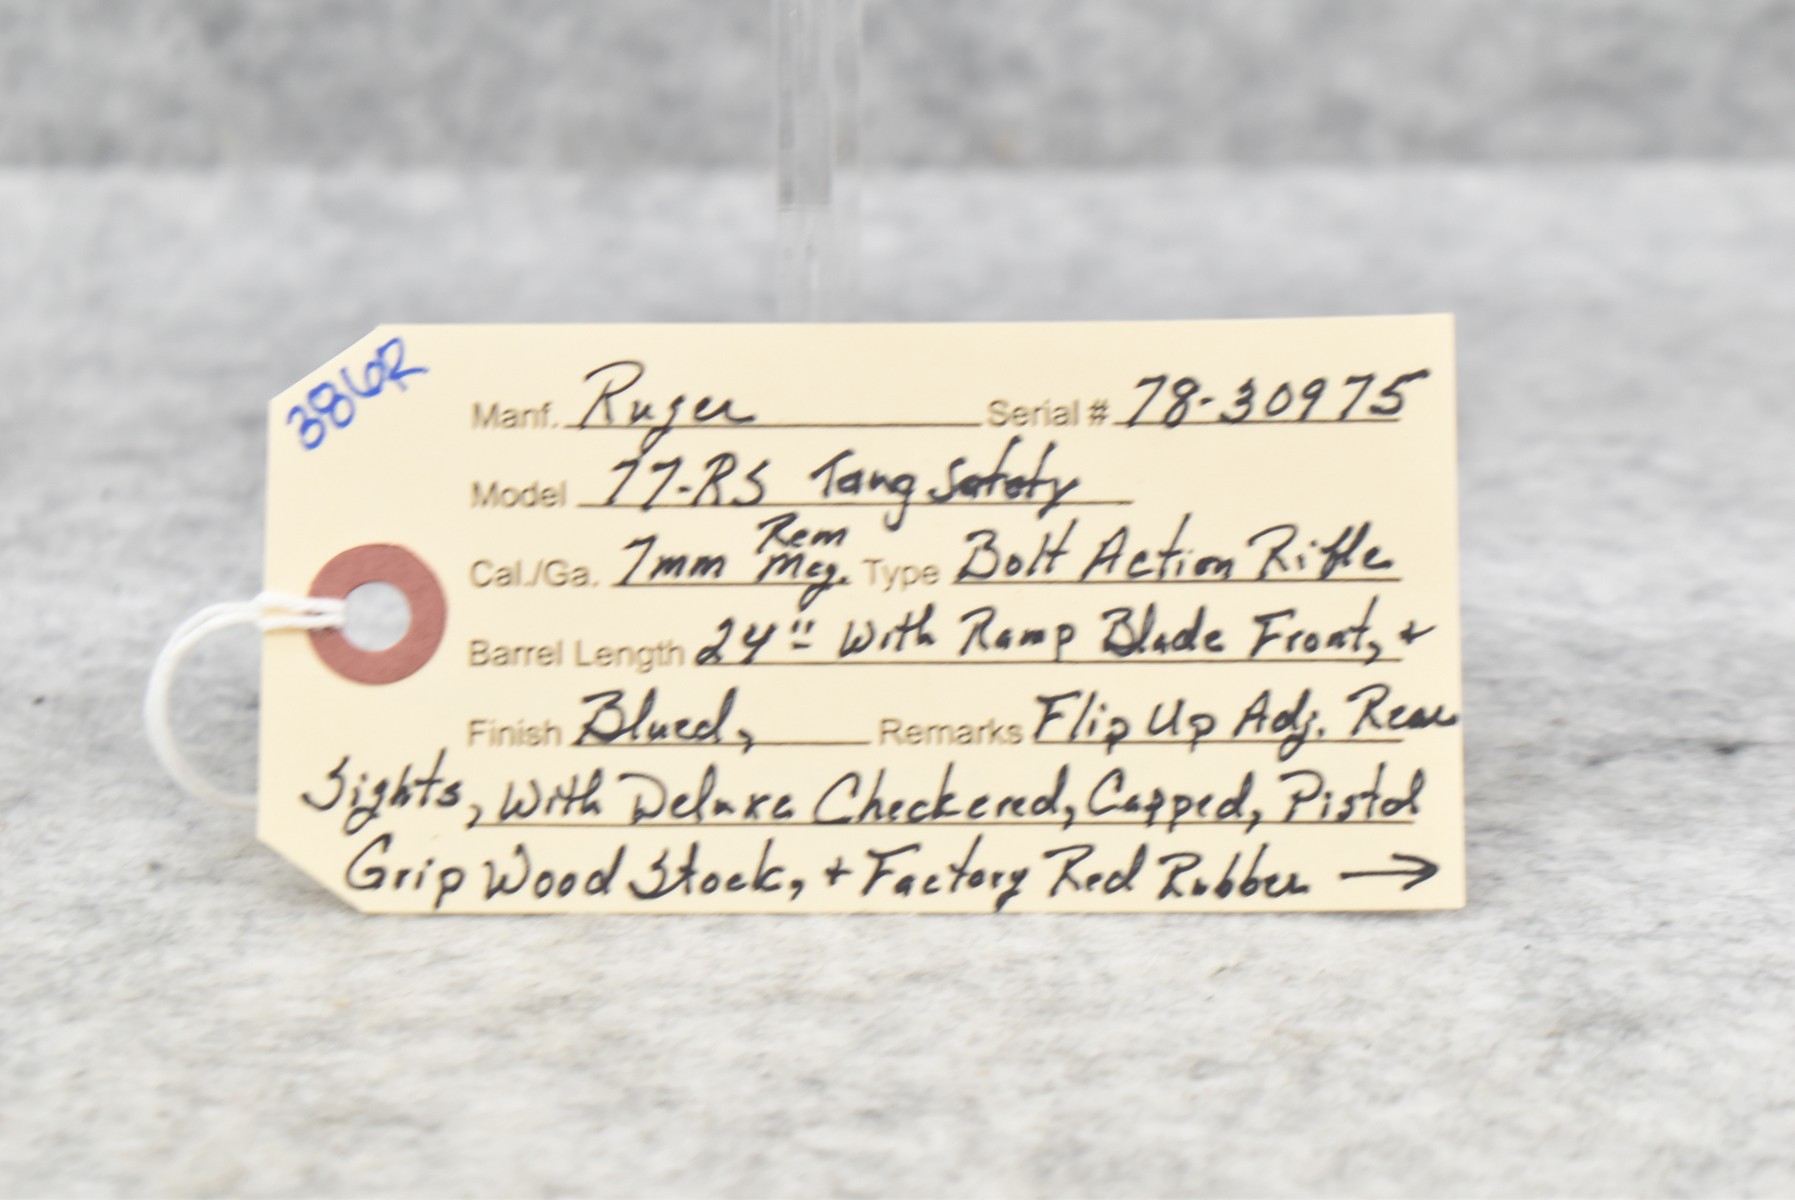 386R
Manf. Ruger Serial # 78-30975
Model 77-RS Tang Safety
Cal./Ga. 7mm Rem Mag. Type Bolt Action Rifle
Barrel Length 24" With Ramp Blade Front, +
Finish Blued, Remarks Flip Up Adj. Rear
Sights, With Deluxe Checkered, Capped, Pistol
Grip Wood Stock, + Factory Red Rubber →